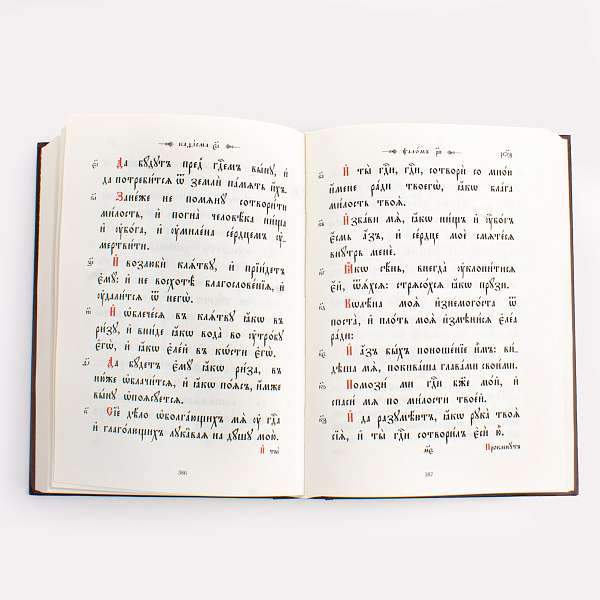 каѳі́сма
Да бꙋ́дꙋтъ пред̾ гдⷭ҇емъ вы́нꙋ, и҆
да потреби́тсѧ ѿ землѝ па́мѧть и҆́хъ.
Зане́же не помѧнꙋ̀ сотвори́ти
ми́лость, и҆ погна̀ человѣ́ка ни́ща
и҆ ᲂу҆бо́га, и҆ ᲂу҆миле́на се́рдцемъ ᲂу҆-
мертви́ти.
И҆ возлюбѝ клѧ́твꙋ, и҆ прїи́детъ
є҆мꙋ̀: и҆ не восхотѣ̀ благослове́нїѧ, и҆
ᲂу҆дали́тсѧ ѿ негѡ̀.
И҆ ѡ҆блече́сѧ въ клѧ́твꙋ ꙗ҆́кѡ въ
ри́зꙋ, и҆ вни́де ꙗ҆́кѡ вода̀ во ᲂу҆тро́бꙋ
є҆гѡ̀, и҆ ꙗ҆́кѡ є҆ле́й въ кѡ́сти є҆гѡ̀.
Да бꙋ́детъ є҆мꙋ̀ ꙗ҆́кѡ ри́за, въ
ню́же ѡ҆блачи́тсѧ, и҆ ꙗ҆́кѡ по́ѧсъ, и҆́мже
вы́нꙋ ѡ҆поѧсꙋ́етсѧ.
Сїѐ дѣ́ло ѡ҆болга́ющихъ мѧ̀ ᲂу҆ гдⷭ҇а
и҆ глаго́лющихъ лꙋка́ваѧ на дꙋ́шꙋ мою̀.
И҆ ты̀
386
ѱало́мъ рн҃
И҆ ты̀ гдⷭ҇и, гдⷭ҇и, сотворѝ со мно́ю
и҆́мене ра́ди твоегѡ̀, ꙗ҆́кѡ бл҃га̀
ми́лость твоѧ̀.
И҆зба́ви мѧ̀, ꙗ҆́кѡ ни́щъ и҆ ᲂу҆бо́гъ
є҆́смь а҆́зъ, и҆ се́рдце моѐ смѧте́сѧ
внꙋ́трь менє̀.
Ꙗ҆́кѡ сѣ́нь, внегда̀ ᲂу҆клони́тисѧ
є҆́й, ѿѧ́хсѧ: стрѧсо́хсѧ ꙗ҆́кѡ прꙋ́зи.
Кѡлѣ́на моѧ̑ и҆знемого́ста ѿ
поста̀, и҆ пло́ть моѧ̀ и҆змѣни́сѧ є҆ле́а
ра́ди:
И҆ а҆́зъ бы́хъ поноше́нїе и҆̀мъ: ви́-
дѣша мѧ̀, покива́ша глава́ми свои́ми.
Помози́ ми гдⷭ҇и бж҃е мо́й, и҆
сп҃си́ мѧ по ми́лости твое́й.
И҆ да разꙋмѣ́ютъ, ꙗ҆́кѡ рꙋка̀ твоѧ̀
сїѧ̀, и҆ ты̀ гдⷭ҇и сотвори́лъ є҆сѝ ю҆̀.
Прокленꙋ́тъ
387